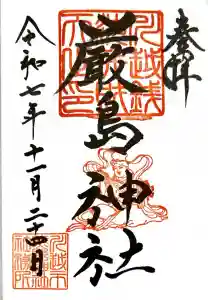 奉拝
厳島神社
令和七年十一月二十四日